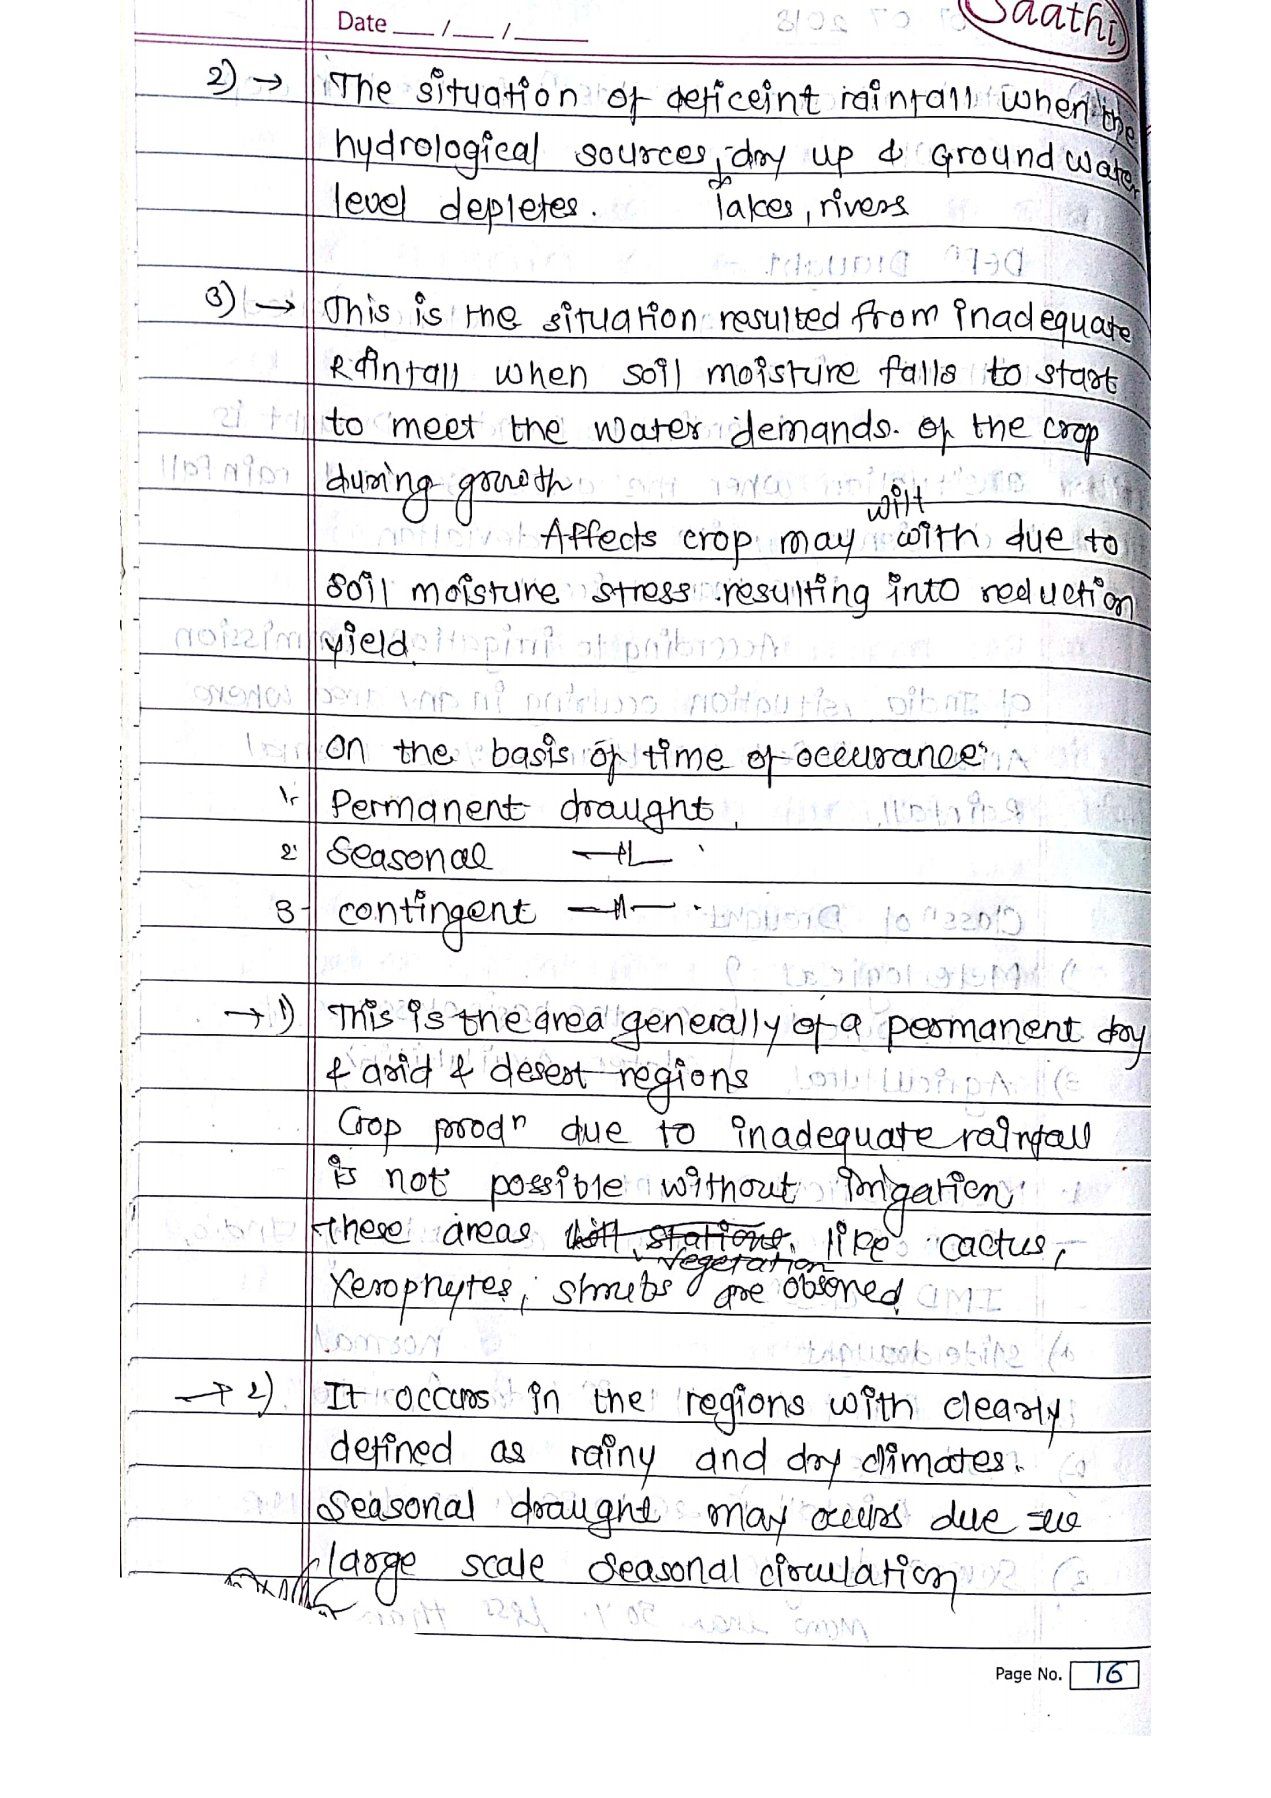 Date __/__/____
Saathi
2) → The situation of deficeint rainfall when the
hydrological sources, dry up & Ground water
level depletes. lakes, rivers
3) → This is the situation resulted from inadequate
Rainfall when soil moisture falls to start
to meet the water demands. of the crop
during growth
wilt
Affects crop may with due to
soil moisture stress resulting into reduction
yield.
On the basis of time of occurance
1. Permanent draught.
2. Seasonal —||—
3. contingent —||—
→ 1) This is the area generally of a permanent dry
& arid & desert regions
Crop prodⁿ due to inadequate rainfall
is not possible without irrigation
these areas like cactus,
vegetation
Xerophytes, shrubs are observed
→ 2) It occurs in the regions with clearly
defined as rainy and dry climates.
Seasonal draught may occurs due
large scale seasonal circulation
Page No. 16